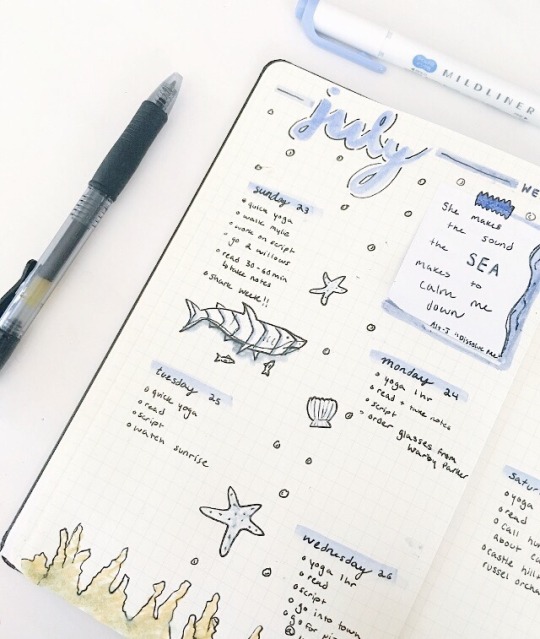 MILDLINER
july
WE
sunday 23
quick yoga
work on script
go 2 willows
read 30-60 min
& take notes
shark week!!
She makes
the sound
the SEA
makes to
calm me
down
Alt-J "Dissolve Me"
monday 24
yoga 1 hr
read + take notes
script
order glasses from
Warby Parker
tuesday 25
quick yoga
read
script
watch sunrise
wednesday 26
yoga 1 hr
read
script
go into town
go for
satur
yoga
read
call
about
castle hill
russel